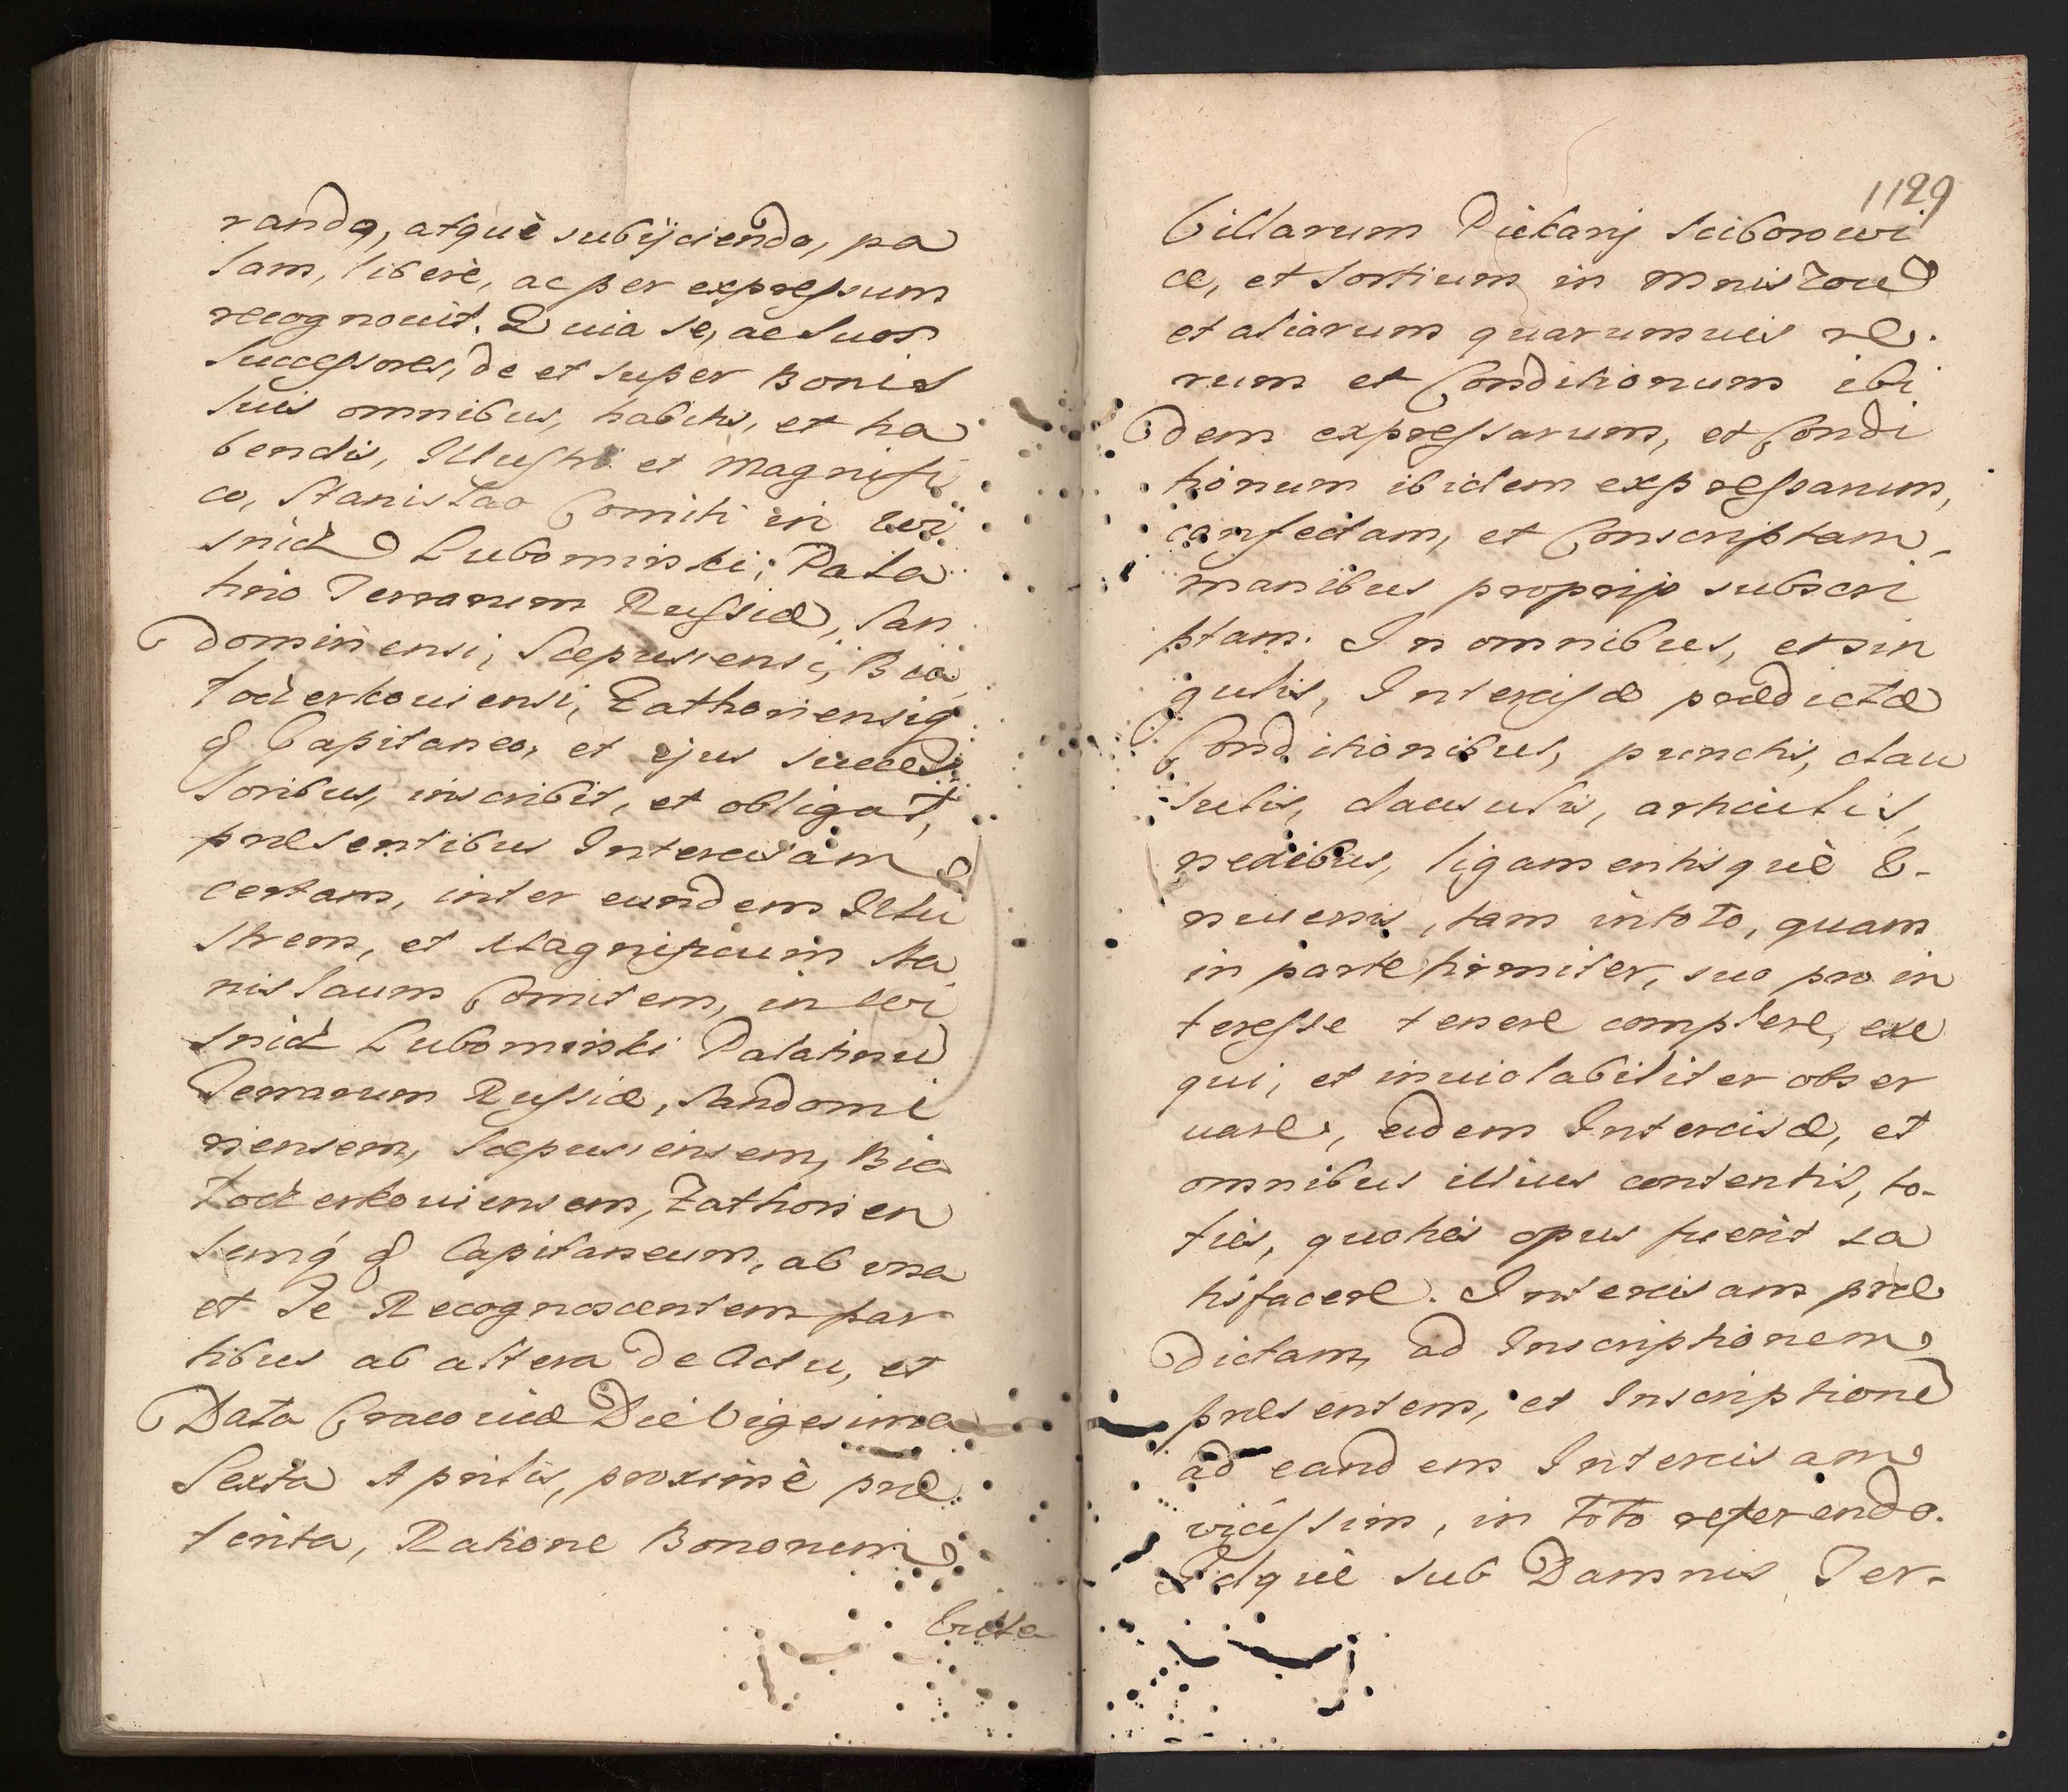 rando, atquè subijciendo, pa
lam, liberè, ac per expressum
recognouit. Quia se, ac suos
successores, de et super Bonis
suis omnibus, habitis, et ha
bendis, Illustri et Magnifi
co, Stanislao Comiti in Wi
snicz Lubomirski, Pala
tino Terrarum Russiæ, San
domiriensi, Scepusiensi, Bia
łocerkouiensi, Zathoriensiq
& Capitaneo, et ejus succes
soribus, inscribit, et obligat,
præsentibus Intercisam
certam, inter eundem Illu
strem, et Magnificum Sta
nislaum Comitem, in Wi
snicz Lubomirski Palatinu
Terrarum Russiæ, Sandomi
riensem, Scepusiensem, Bia
łocerkouiensem, Zathorien
semq́ & Capitaneum, ab vna
et se Recognoscentem par
tibus ab altera de Actu, et
Data Cracouiæ Die Vigesima
Sexta Aprilis, proximè præ
terita, Ratione Bonorum
Villa
1129
Villarum Piekary Sciborowi
ce, et Sortium in Mniszow
et aliarum quarumuis re.
rum et Conditionum ibi
dem expressarum, et Condi
tionum ibidem expressarum,
confectam, et Conscriptam,
manibus proprijs subscri
ptam. In omnibus, et sin
gulis, Intercisæ prædictæ
Conditionibus, punctis, clau
sulis, clausulis, articulis,
nexibus, ligamentisquè V-
niuersis, tam in toto, quam
in parte firmiter, suo pro in
teresse tenere complere, exe
qui, et inuiolabiliter obser
uare, eidem Intercisæ, et
omnibus illius contentis, to-
ties, quoties opus fuerit sa
tisfacere. Intercisam præ
dictam, ad Inscriptionem
præsentem, et Inscriptione
ad eandem Intercisam
vicissim, in toto referendo.
Idquè sub Damnis Ter-